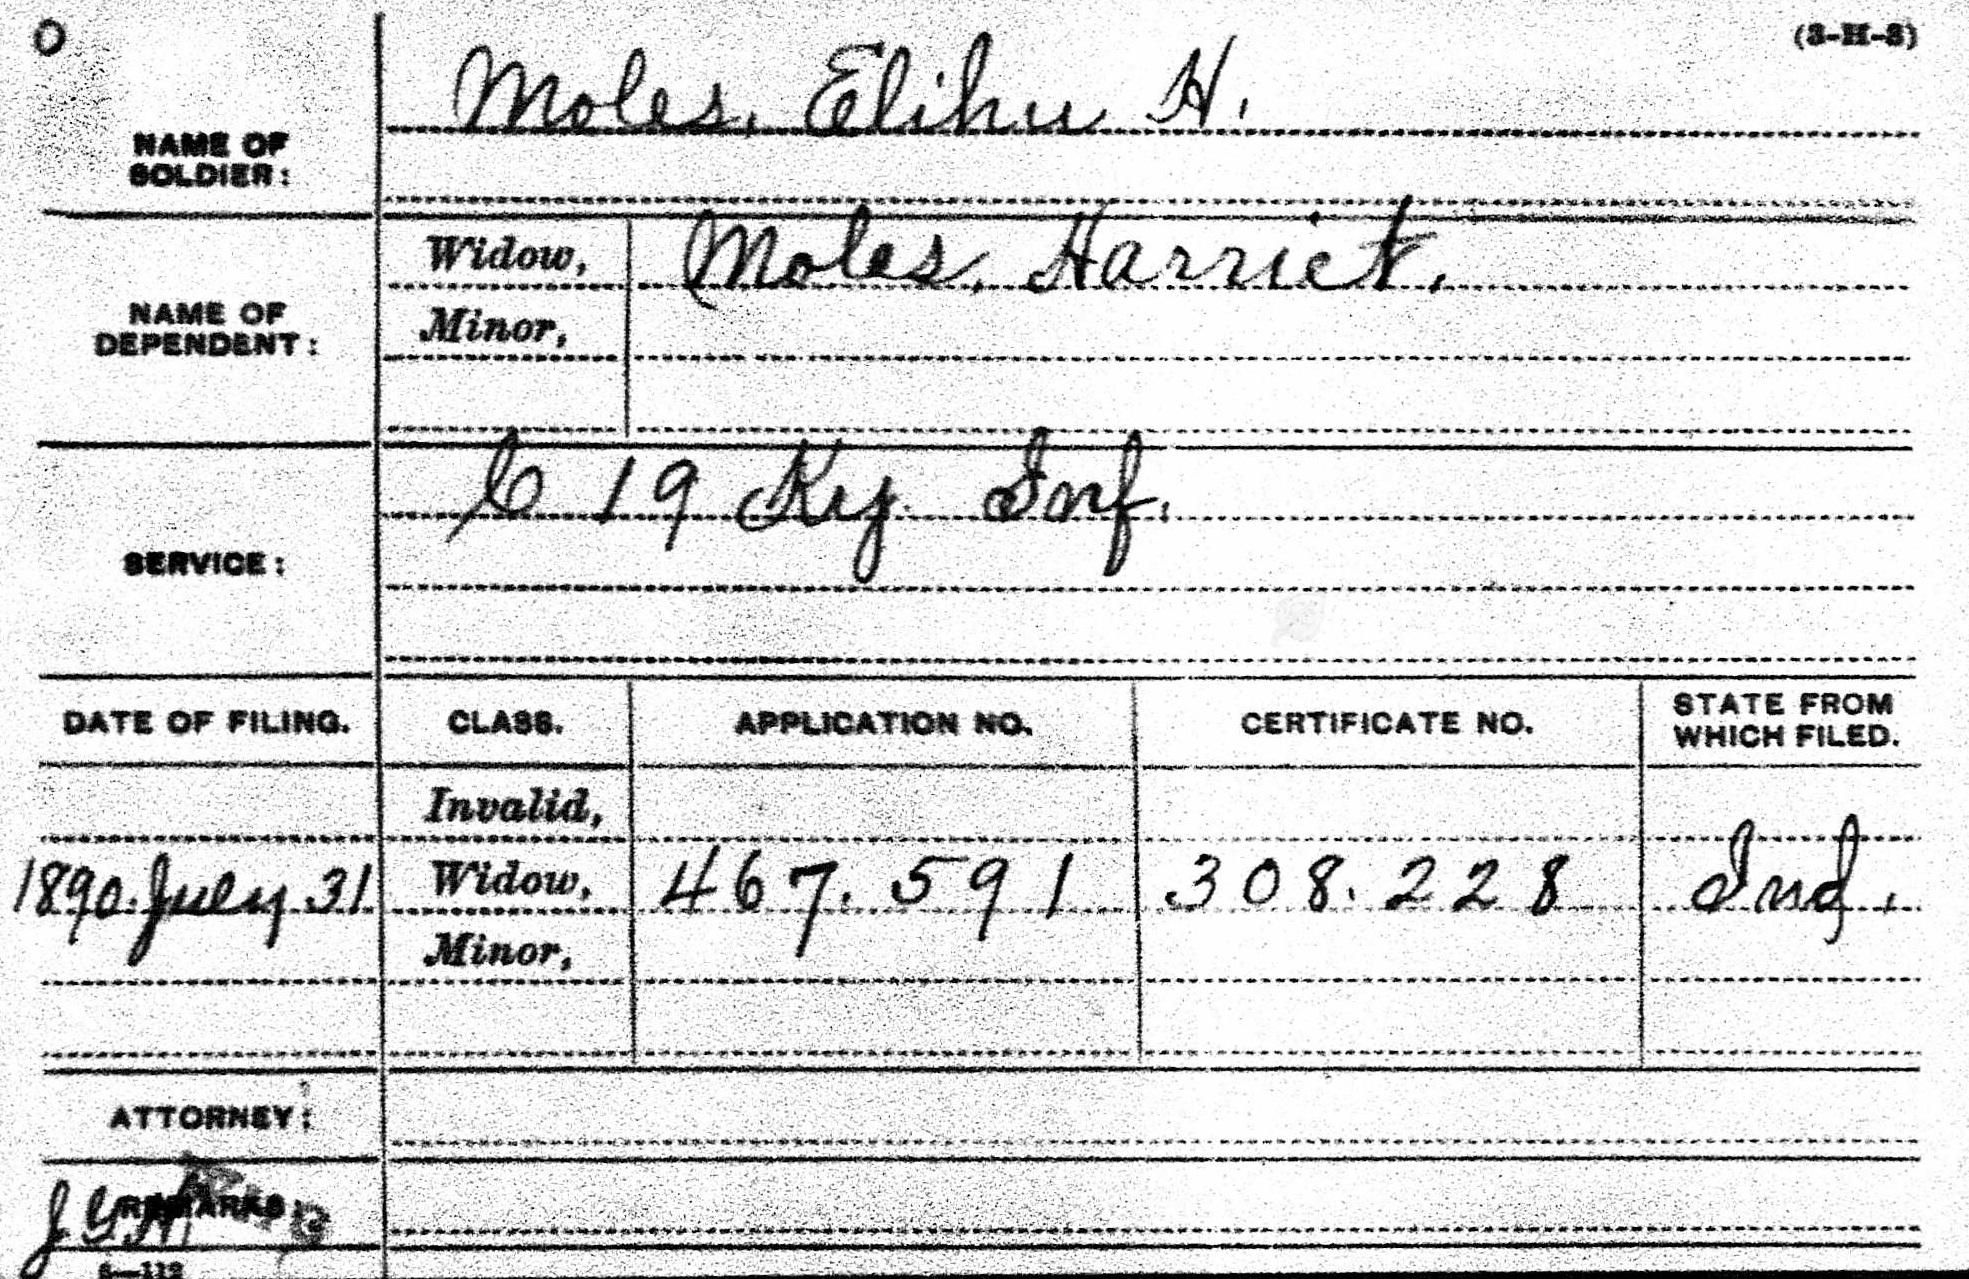 O
(3-H-3)
Moles, Elihu H.
NAME OF
SOLDIER:
Widow, Moles, Harriet.
NAME OF
DEPENDENT:
Minor,
C 19 Ky. Inf.
SERVICE:
DATE OF FILING. CLASS. APPLICATION NO. CERTIFICATE NO. STATE FROM
WHICH FILED.
Invalid,
1890. July 31 Widow, 467.591 308.228 Ind.
Minor,
ATTORNEY:
REMARKS: